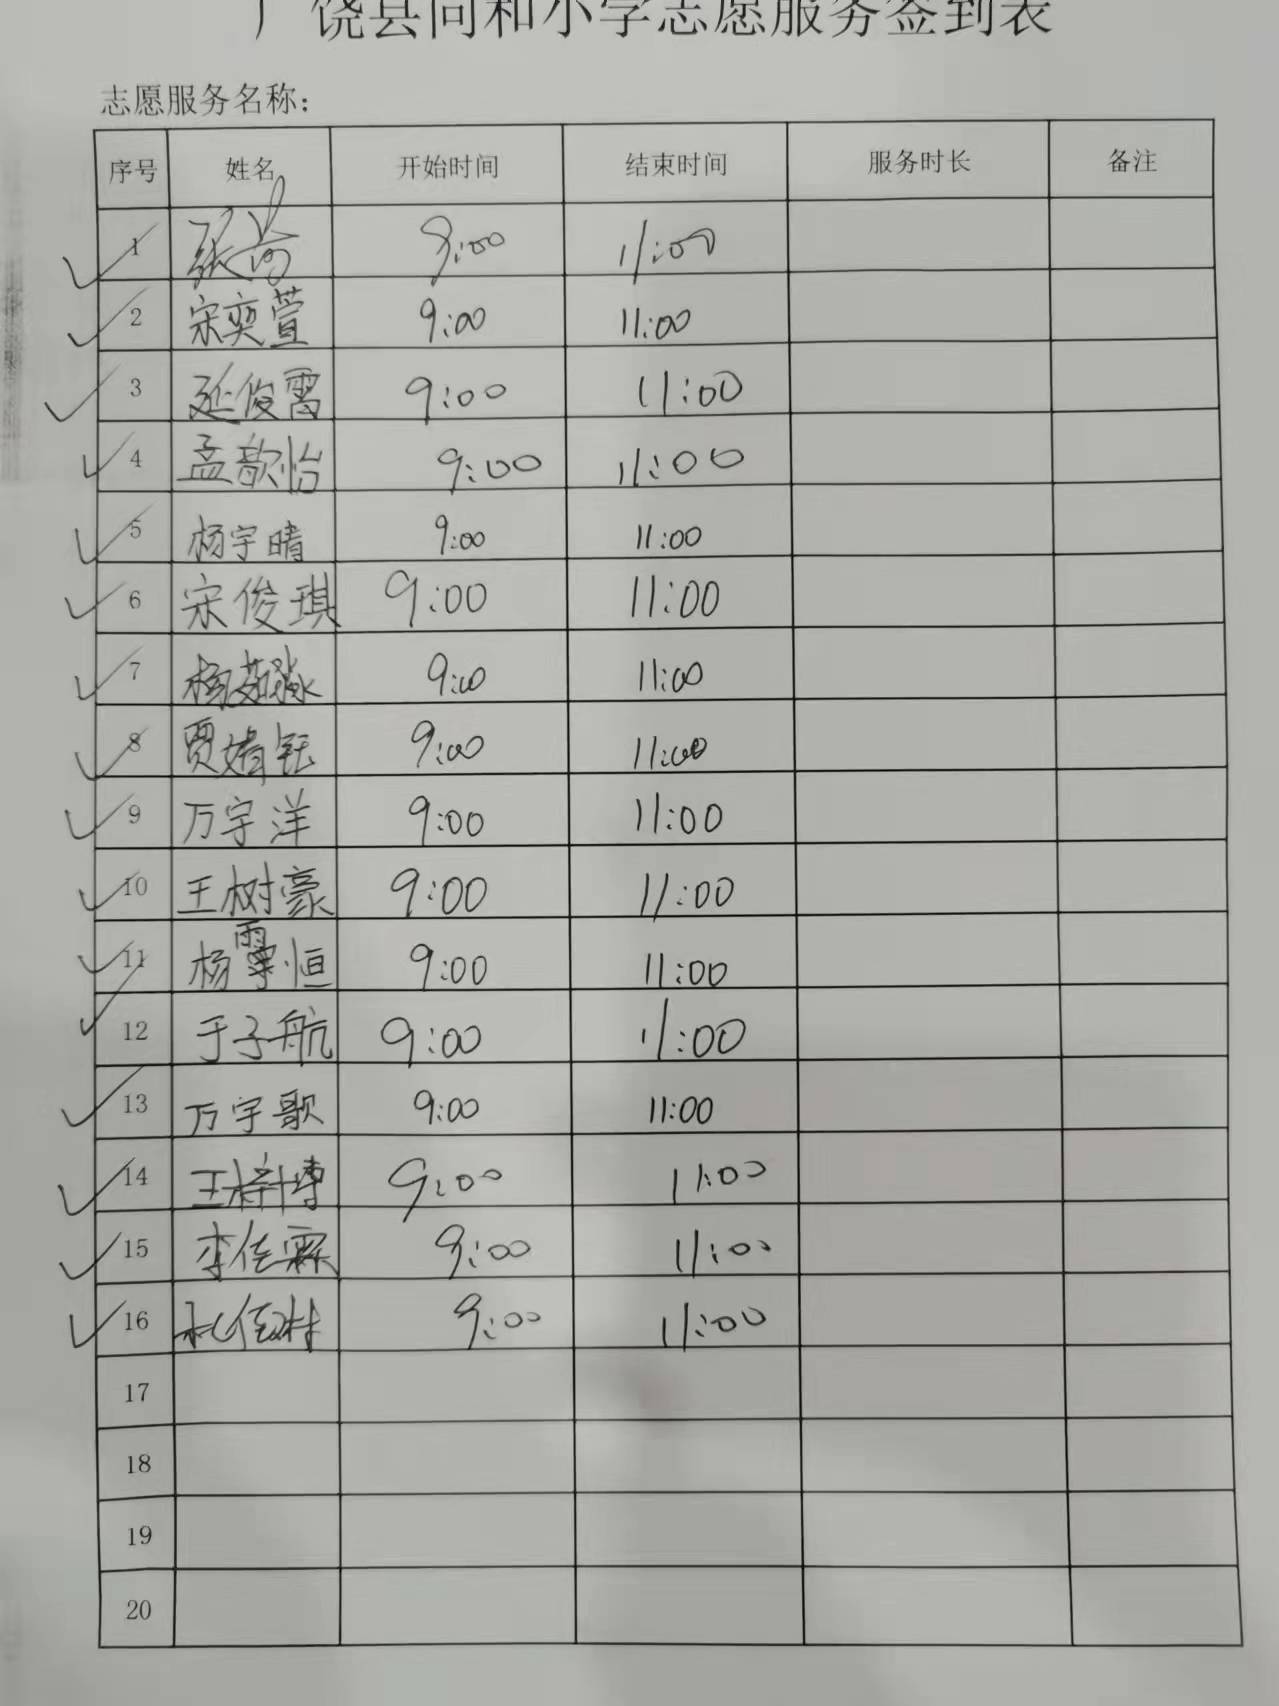 广饶县同和小学志愿服务签到表
志愿服务名称：
序号 姓名 开始时间 结束时间 服务时长 备注
1 张 9:00 11:00
2 宋奕萱 9:00 11:00
3 延俊霄 9:00 11:00
4 孟歆怡 9:00 11:00
5 杨宇晴 9:00 11:00
6 宋俊琪 9:00 11:00
7 杨茹淼 9:00 11:00
8 贾婧钰 9:00 11:00
9 万宇洋 9:00 11:00
10 王树豪 9:00 11:00
11 杨霏恒 9:00 11:00
12 于子航 9:00 11:00
13 万宇歌 9:00 11:00
14 王梓博 9:00 11:00
15 李佳霖 9:00 11:00
16 9:00 11:00
17
18
19
20